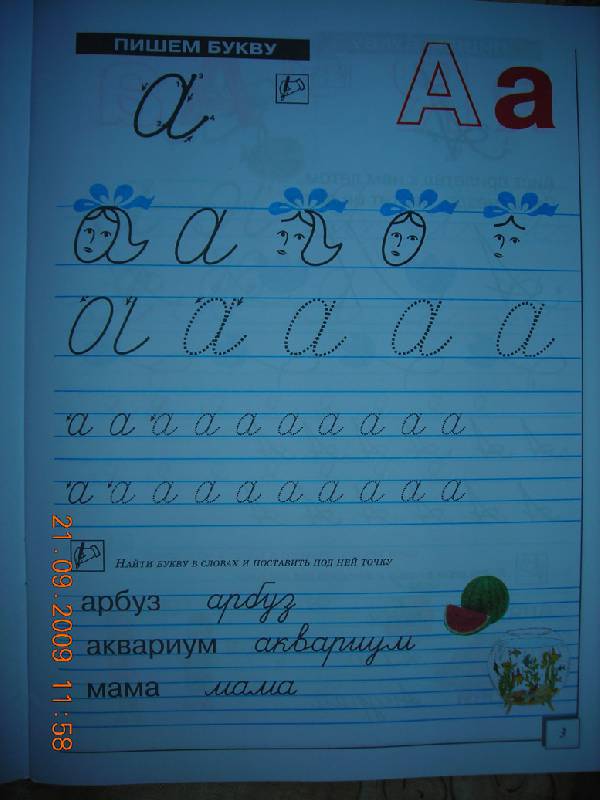 ПИШЕМ БУКВУ
а
А а
а а
а а а а а
а а а а а а а а а а
а а а а а а а а а а
НАЙТИ БУКВУ В СЛОВАХ И ПОСТАВИТЬ ПОД НЕЙ ТОЧКУ
арбуз арбуз
аквариум аквариум
мама мама
3
21.09.2009 11:58